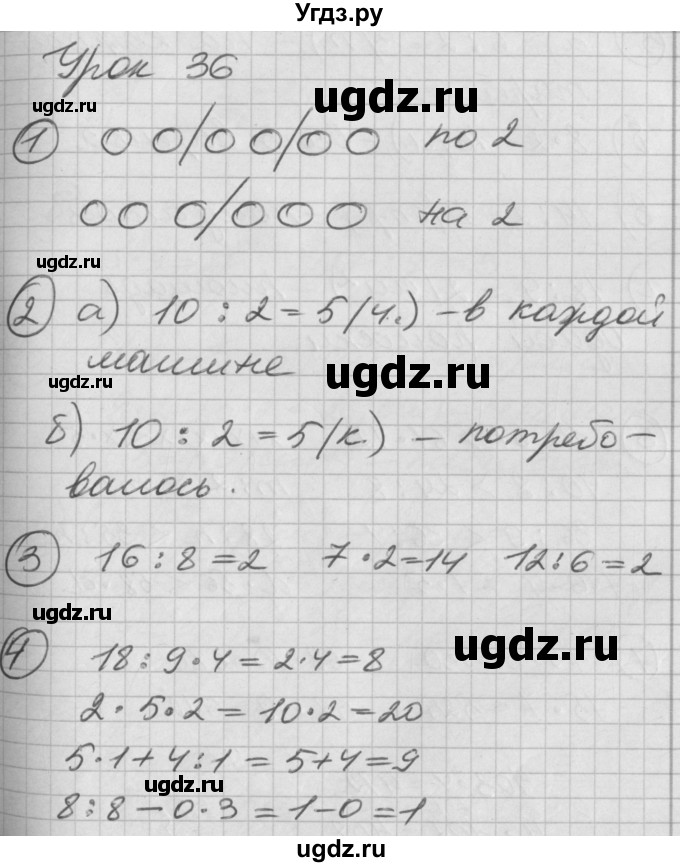 Угдз.ру
Урок 36
ugdz.ru
① ○ ○/○ ○/○ ○ по 2
ugdz.ru
○ ○ ○/○ ○ ○ на 2
ugdz.ru
② а) 10 : 2 = 5 (ч.) – в каждой
машине
ugdz.ru
ugdz.ru
б) 10 : 2 = 5 (к.) – потребо-
валось.
ugdz.ru
③ 16 : 8 = 2 7 · 2 = 14 12 : 6 = 2
ugdz.ru
④ 18 : 9 · 4 = 2 · 4 = 8
ugdz.ru
2 · 5 · 2 = 10 · 2 = 20
5 · 1 + 4 : 1 = 5 + 4 = 9
ugdz.ru
8 : 8 – 0 · 3 = 1 – 0 = 1
ugdz.ru